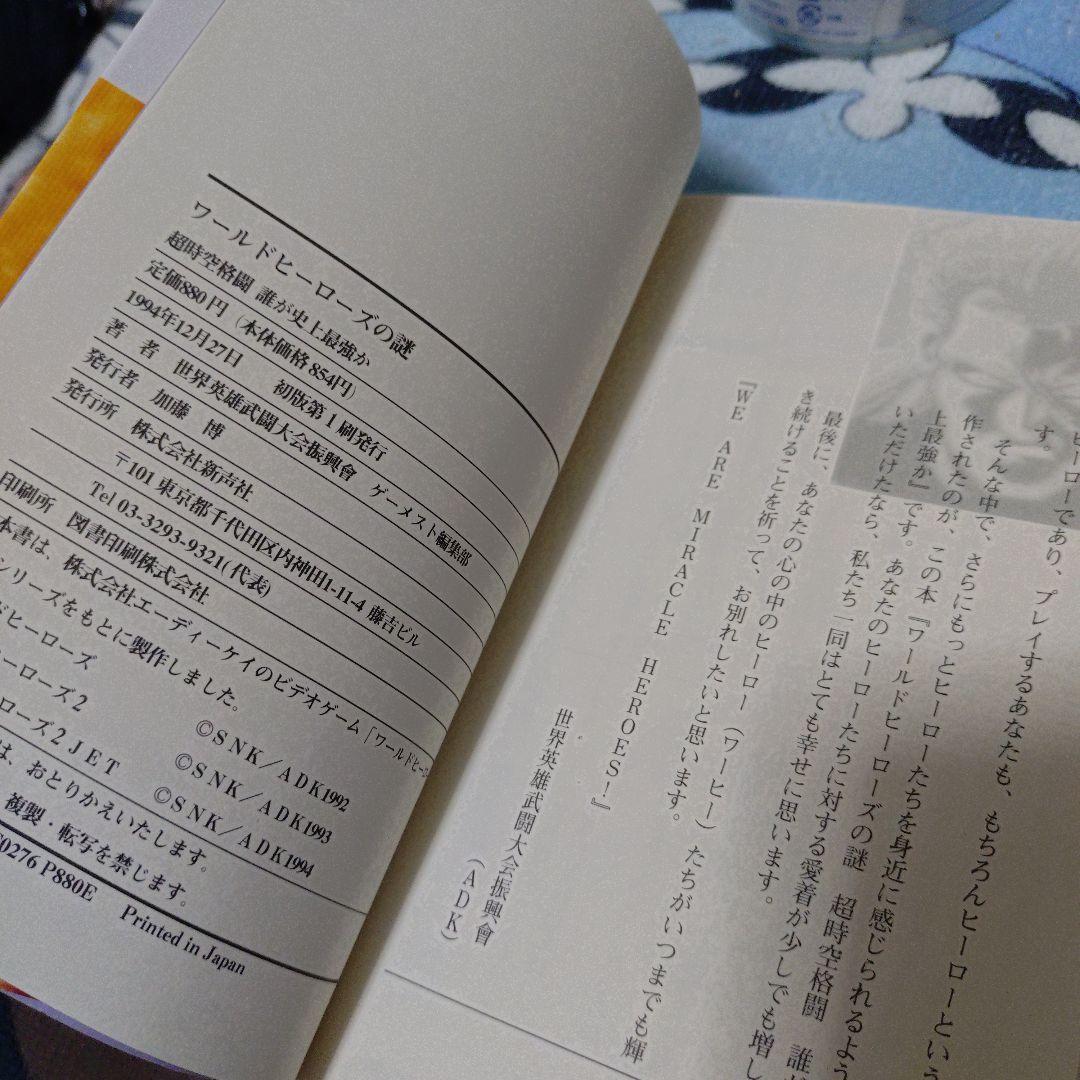 ワールドヒーローズの謎
超時空格闘 誰が史上最強か
定価880円(本体価格854円)
1994年12月27日 初版第1刷発行
著 者 世界英雄武闘大会振興會 ゲーメスト編集部
発行者 加藤 博
発行所 株式会社新声社
〒101 東京都千代田区内神田1-11-4 藤吉ビル
Tel 03-3293-9321(代表)
印刷所 図書印刷株式会社
本書は、株式会社エーディーケイのビデオゲーム「ワールドヒーロー
シリーズをもとに製作しました。
ドヒーローズ ©SNK/ADK1992
ーローズ2 ©SNK/ADK1993
ローズ2JET ©SNK/ADK1994
は、おとりかえいたします。
複製・転写を禁じます。
0276 P880E Printed in Japan
ヒーローであり、プレイするあなたも、もちろんヒーローという
す。
そんな中で、さらにもっとヒーローたちを身近に感じられるよう
作されたのが、この本『ワールドヒーローズの謎 超時空格闘 誰が
上最強か』です。あなたのヒーローたちに対する愛着が少しでも増し
いただけたなら、私たち一同はとても幸せに思います。
最後に、あなたの心の中のヒーロー(ワーヒー)たちがいつまでも輝
き続けることを祈って、お別れしたいと思います。
『WE ARE MIRACLE HEROES!』
世界英雄武闘大会振興會
(ADK)